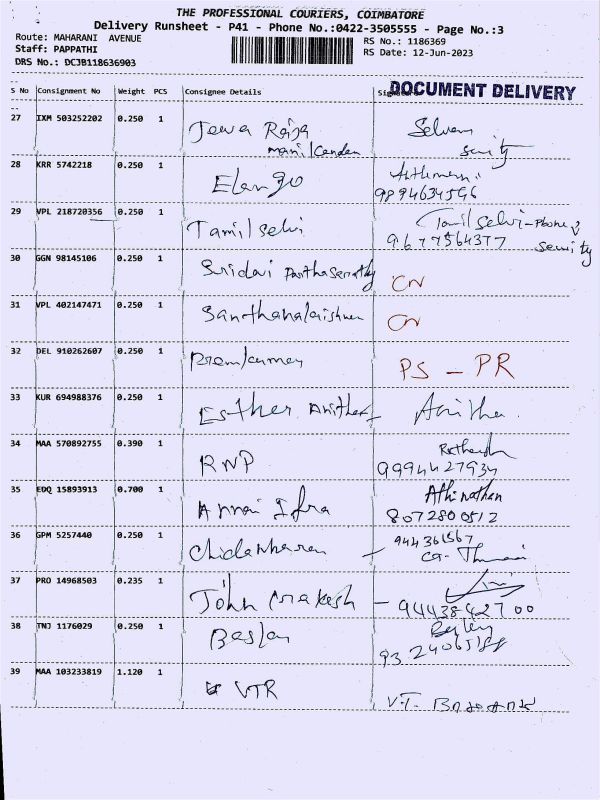 THE PROFESSIONAL COURIERS, COIMBATORE
Delivery Runsheet - P41 - Phone No.:0422-3505555 - Page No.:3
Route: MAHARANI AVENUE
RS No.: 1186369
Staff: PAPPATHI
RS Date: 12-Jun-2023
DRS No.: DCJB118636903
S No Consignment No Weight PCS Consignee Details DOCUMENT DELIVERY
27 IXM 503252202 0.250 1 Selvam
28 KRR 5742218 0.250 1 Elango
9894634596
29 VPL 218720356 0.250 1 Tamil Selvi Tamil Selvi - Phone
9677564377
30 GGN 98145106 0.250 1 Sridavi Parthasarathy CN
31 VPL 402147471 0.250 1 CN
32 DEL 910262607 0.250 1 Premkumar PS - PR
33 KUR 694988376 0.250 1 Esther Anitha Anitha.
34 MAA 570892755 0.390 1 RNP
9994427934
35 EDQ 15893913 0.700 1 Annai Infra Athinathan
8072800512
36 GPM 5257440 0.250 1 - 944361567
37 PRO 14968503 0.235 1 John Prakash - 9443842700
38 TNJ 1176029 0.250 1
39 MAA 103233819 1.120 1 VTR V.T.